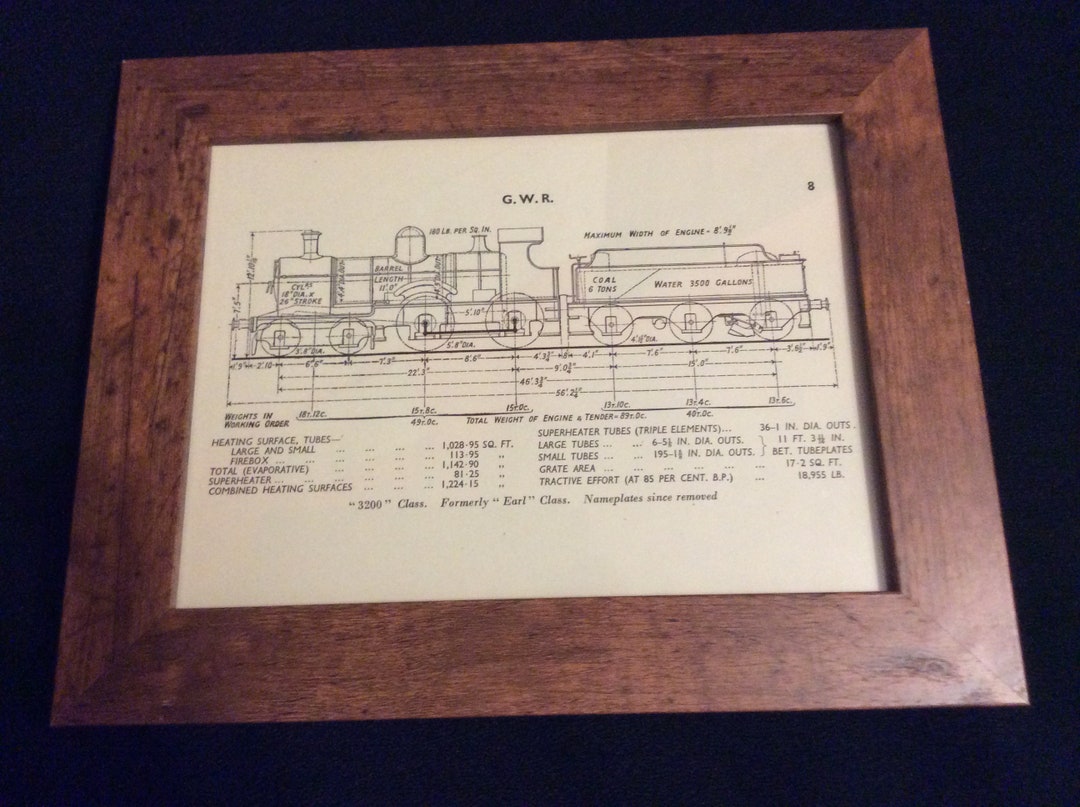 8
G. W. R.
180 LB. PER SQ. IN.
MAXIMUM WIDTH OF ENGINE - 8'. 9¼"
BARREL
LENGTH
11'.0"
CYLRS
18" DIA. X
26" STROKE
COAL
6 TONS
WATER 3500 GALLONS
7'.5"
5'.10"
3'.8" DIA.
5'.8" DIA.
4'.1½" DIA.
1'.9" 2'.10 6'.6" 7'.3" 8'.6" 4'.3¾" 8" 4'.1" 7'.6" 7'.6" 3'.6½" 1'.9"
22'.3" 9'.0¾" 15'.0"
46'.3¾"
56'.2¼"
WEIGHTS IN
WORKING ORDER
18T.12C. 15T.8C. 15T.0C. 13T.10C. 13T.4C. 13T.6C.
49T.0C. TOTAL WEIGHT OF ENGINE & TENDER = 89T.0C. 40T.0C.
HEATING SURFACE, TUBES—
LARGE AND SMALL ... ... ... ... 1,028·95 SQ. FT.
FIREBOX ... ... ... ... ... 113·95 "
TOTAL (EVAPORATIVE) ... ... ... ... 1,142·90 "
SUPERHEATER ... ... ... ... ... 81·25 "
COMBINED HEATING SURFACES ... ... ... 1,224·15 "
SUPERHEATER TUBES (TRIPLE ELEMENTS)... 36–1 IN. DIA. OUTS.
LARGE TUBES ... ... 6–5⅛ IN. DIA. OUTS. } 11 FT. 3 IN.
SMALL TUBES ... 195–1⅝ IN. DIA. OUTS. } BET. TUBEPLATES
GRATE AREA ... ... ... ... ... ... 17·2 SQ. FT.
TRACTIVE EFFORT (AT 85 PER CENT. B.P.) ... 18,955 LB.
"3200" Class. Formerly "Earl" Class. Nameplates since removed